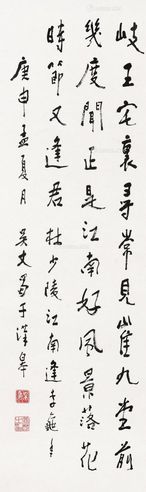 岐王宅裏尋常見崔九堂前
幾度聞正是江南好風景落花
時節又逢君 杜少陵江南逢李龜年
庚申孟夏月 吳丈蜀于漢皋